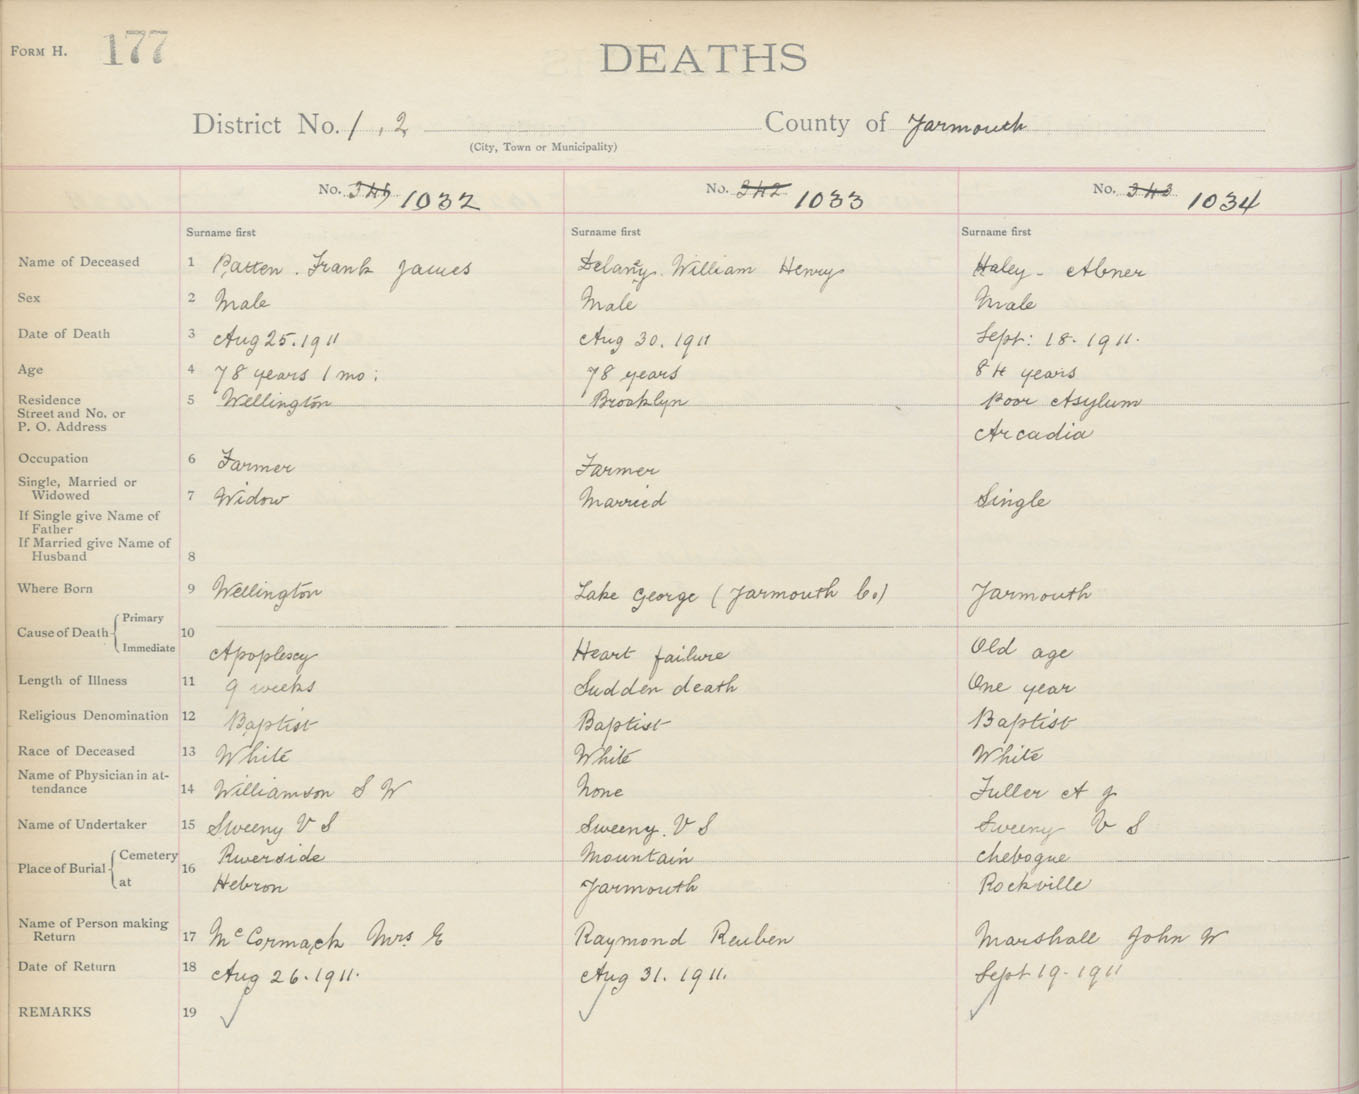 FORM H. 177
DEATHS
District No. 1, 2 County of Yarmouth
(City, Town or Municipality)
No. 1032 No. 342 1033 No. 343 1034
Surname first Surname first Surname first
Name of Deceased 1 Patten. Frank James Delany. William Henry Haley - Abner
Sex 2 Male Male Male
Date of Death 3 Aug 25. 1911 Aug 30. 1911 Sept: 18. 1911.
Age 4 78 years 1 mo: 78 years 84 years
Residence 5 Wellington Brooklyn Poor Asylum
Street and No. or
P. O. Address Arcadia
Occupation 6 Farmer Farmer
Single, Married or
Widowed 7 Widow Married Single
If Single give Name of
Father
If Married give Name of
Husband 8
Where Born 9 Wellington Lake George (Yarmouth Co.) Yarmouth
Primary
Cause of Death 10
Immediate Apoplexy Heart failure Old age
Length of Illness 11 9 weeks Sudden death One year
Religious Denomination 12 Baptist Baptist Baptist
Race of Deceased 13 White White White
Name of Physician in at-
tendance 14 Williamson S W None Fuller A J
Name of Undertaker 15 Sweeny V S Sweeny. V S Sweeny V S
Cemetery Riverside Mountain Chebogue
Place of Burial 16
at Hebron Yarmouth Rockville
Name of Person making
Return 17 McCormack Mrs E Raymond Reuben Marshall John W
Date of Return 18 Aug 26. 1911. Aug 31. 1911. Sept 19. 1911
REMARKS 19 ✓ ✓ ✓